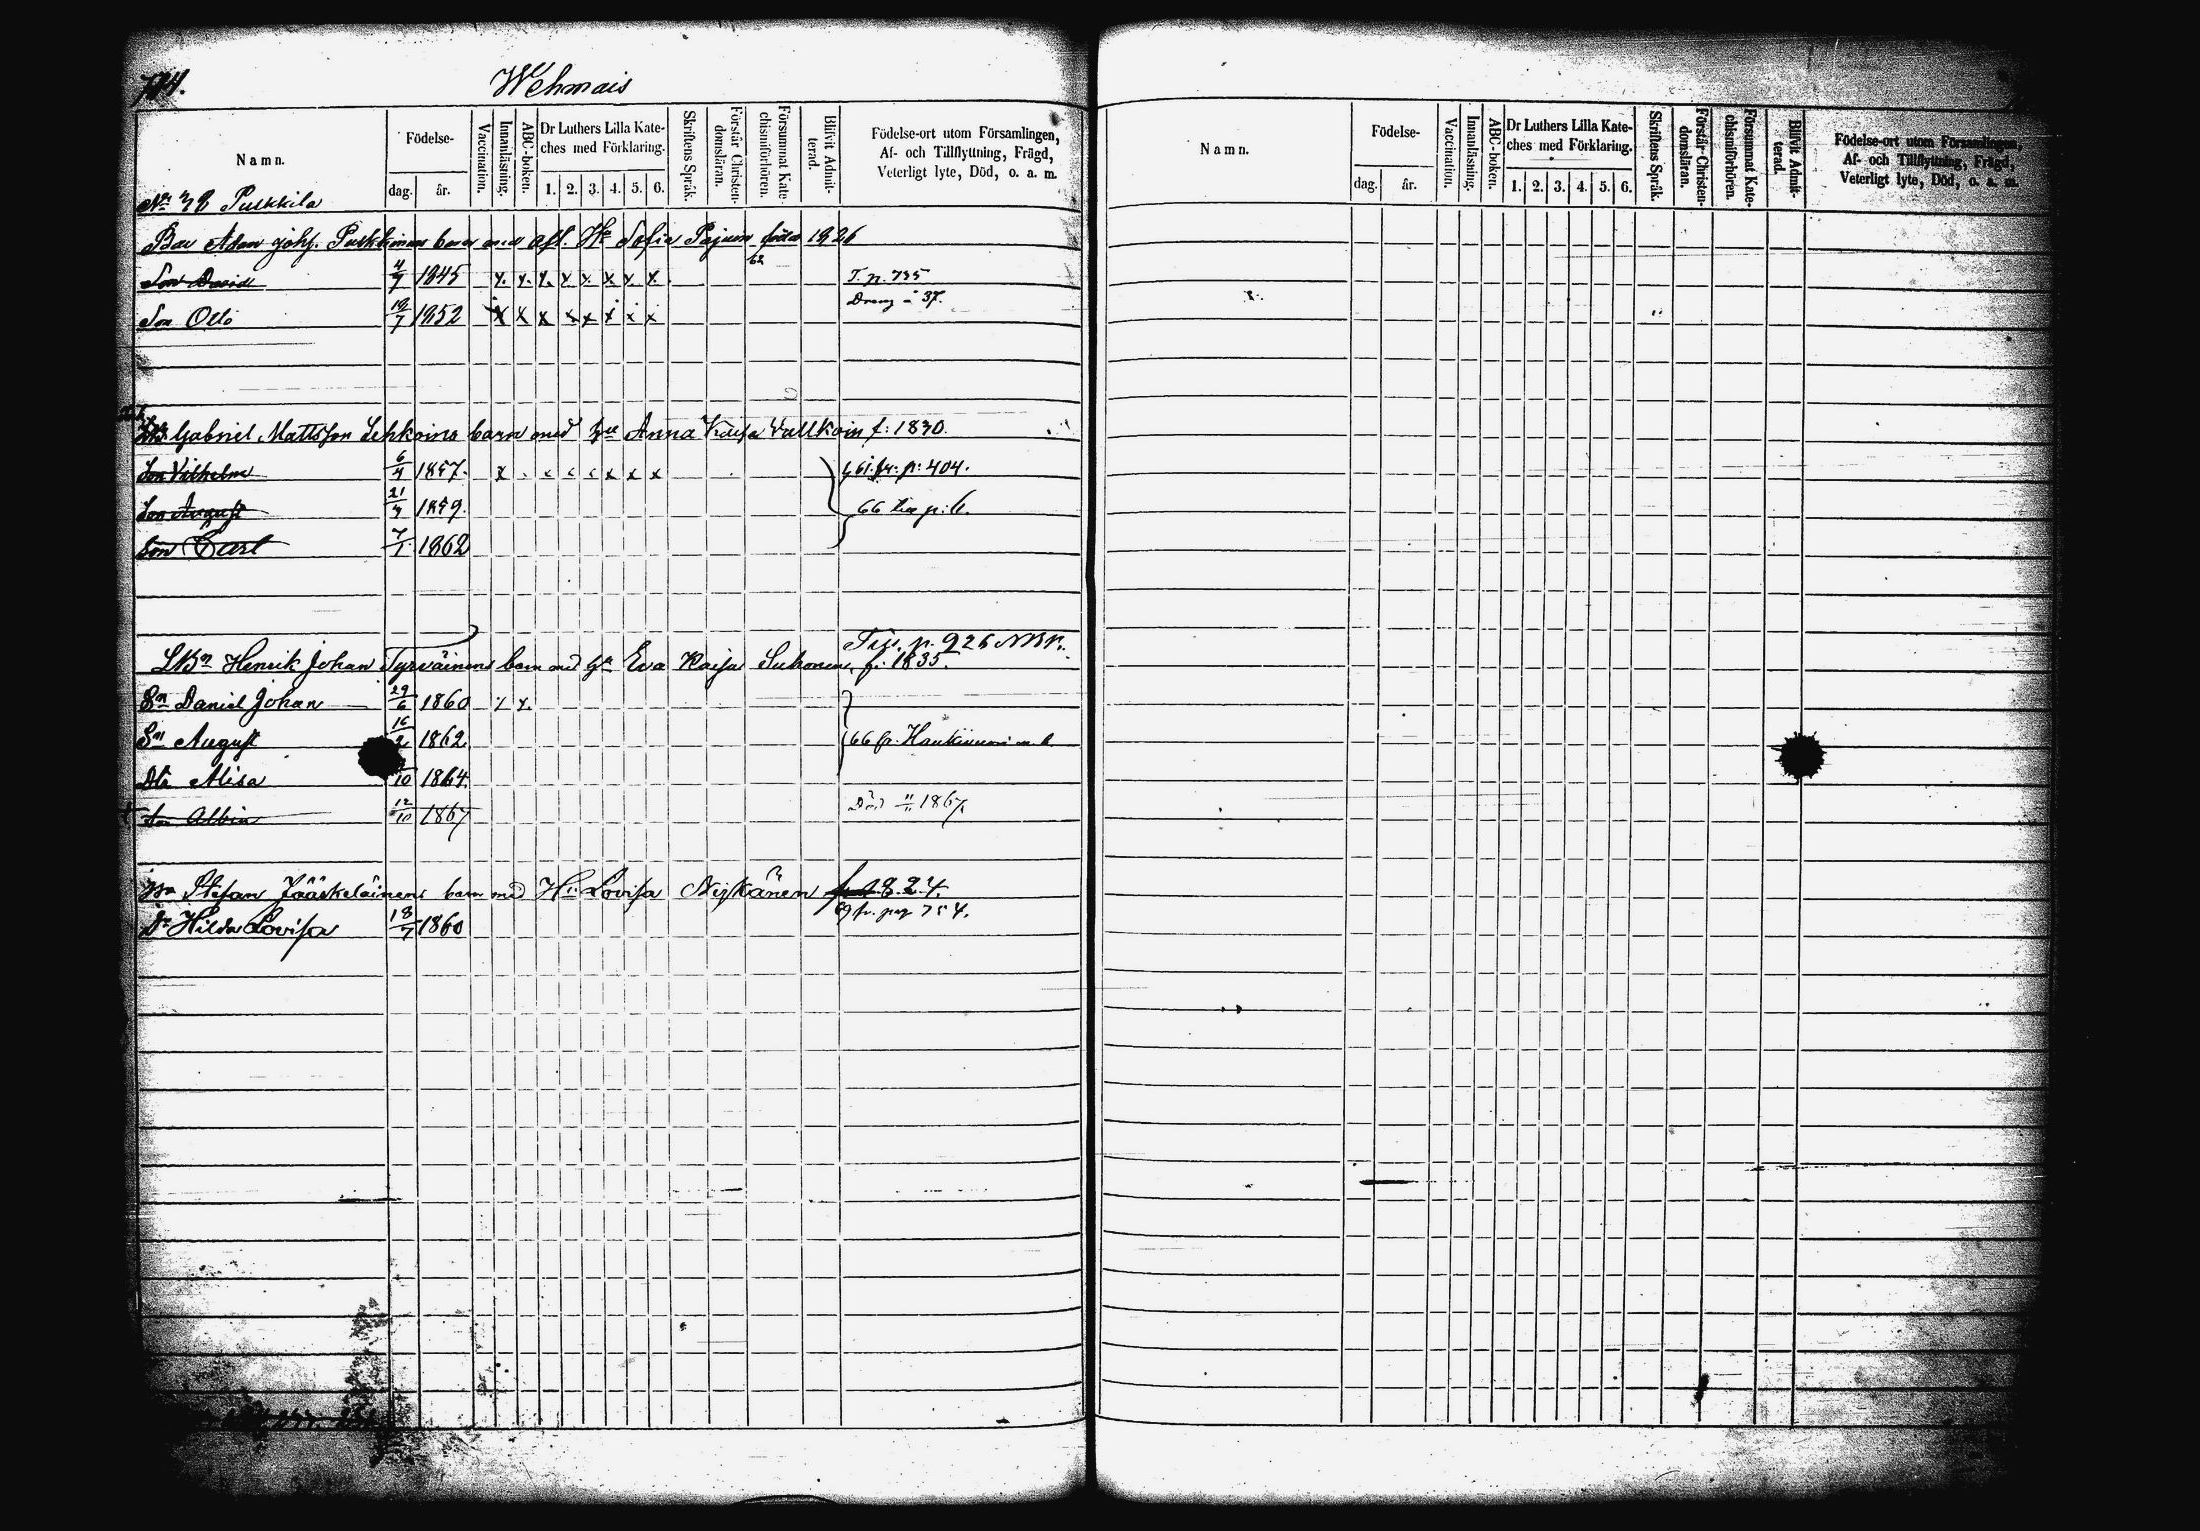 Wehmais
Namn.
Födelse-
dag. år.
Vaccination.
Innanläsning.
ABC-boken.
Dr Luthers Lilla Kate-
ches med Förklaring.
1. 2. 3. 4. 5. 6.
Skriftens Språk.
Förstår Christen-
domsläran.
Försummat Kate-
chismiförhören.
Blifvit Admit-
terad.
Födelse-ort utom Församlingen,
Af- och Tillflyttning, Frägd,
Veterligt lyte, Död, o. a. m.
Puhkkila
Adam Sofia Pajunen född 1826
Son David 4/7 1845 x x x x x x x x T. p. 735
Dreng à 37.
Son Otto 7 1852 x x x x x x x x
Gabriel Mattsson barn med Anna f: 1830.
Son Vilhelm 6/4 1857. x x x x p: 404.
Son August 21/7 1859. 66
Son Carl 7/1 1862
p. 926
Henrik Johan Tyrväinens barn med Eva Kaisa Suhonen, f. 1835.
Sn Daniel Johan 29/6 1860 x x
Sn August 16/2 1862 66 fr.
Dtr Alisa 10 1864
Son Albin 12/10 1867 Död 11/11 1867
Stefan Jääskeläinens barn med Lovisa Nyykänen 1824.
69 fr. pag 754.
Dr Hilda Lovisa 18/7 1860
Namn.
Födelse-
dag. år.
Vaccination.
Innanläsning.
ABC-boken.
Dr Luthers Lilla Kate-
ches med Förklaring.
1. 2. 3. 4. 5. 6.
Skriftens Språk.
Förstår Christen-
domsläran.
Försummat Kate-
chismiförhören.
Blifvit Admit-
terad.
Födelse-ort utom Församlingen,
Af- och Tillflyttning, Frägd,
Veterligt lyte, Död, o. a. m.